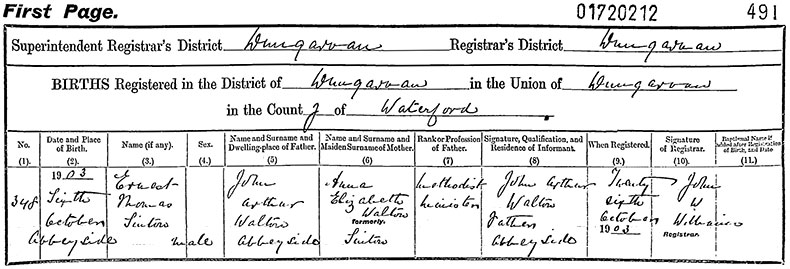 First Page. 01720212 491
Superintendent Registrar's District Dungarvan Registrar's District Dungarvan
BIRTHS Registered in the District of Dungarvan in the Union of Dungarvan
in the County of Waterford
No. (1). Date and Place of Birth (2). Name (if any). (3.) Sex. (4.) Name and Surname and Dwelling-place of Father. (5) Name and Surname and Maiden Surname of Mother. (6) Rank or Profession of Father. (7) Signature, Qualification, and Residence of Informant. (8) When Registered. (9.) Signature of Registrar. (10.) Baptismal Name if added after Registration of Birth, and Date (11.)
1903 Ernest John Anna Methodist John Arthur Twenty John
348 Sixth Thomas Arthur Elizabeth Minister Walton sixth W
October Sinton Walton Walton Father October Williams
formerly. Registrar.
Abbeyside male Abbeyside Sinton Abbeyside 1903